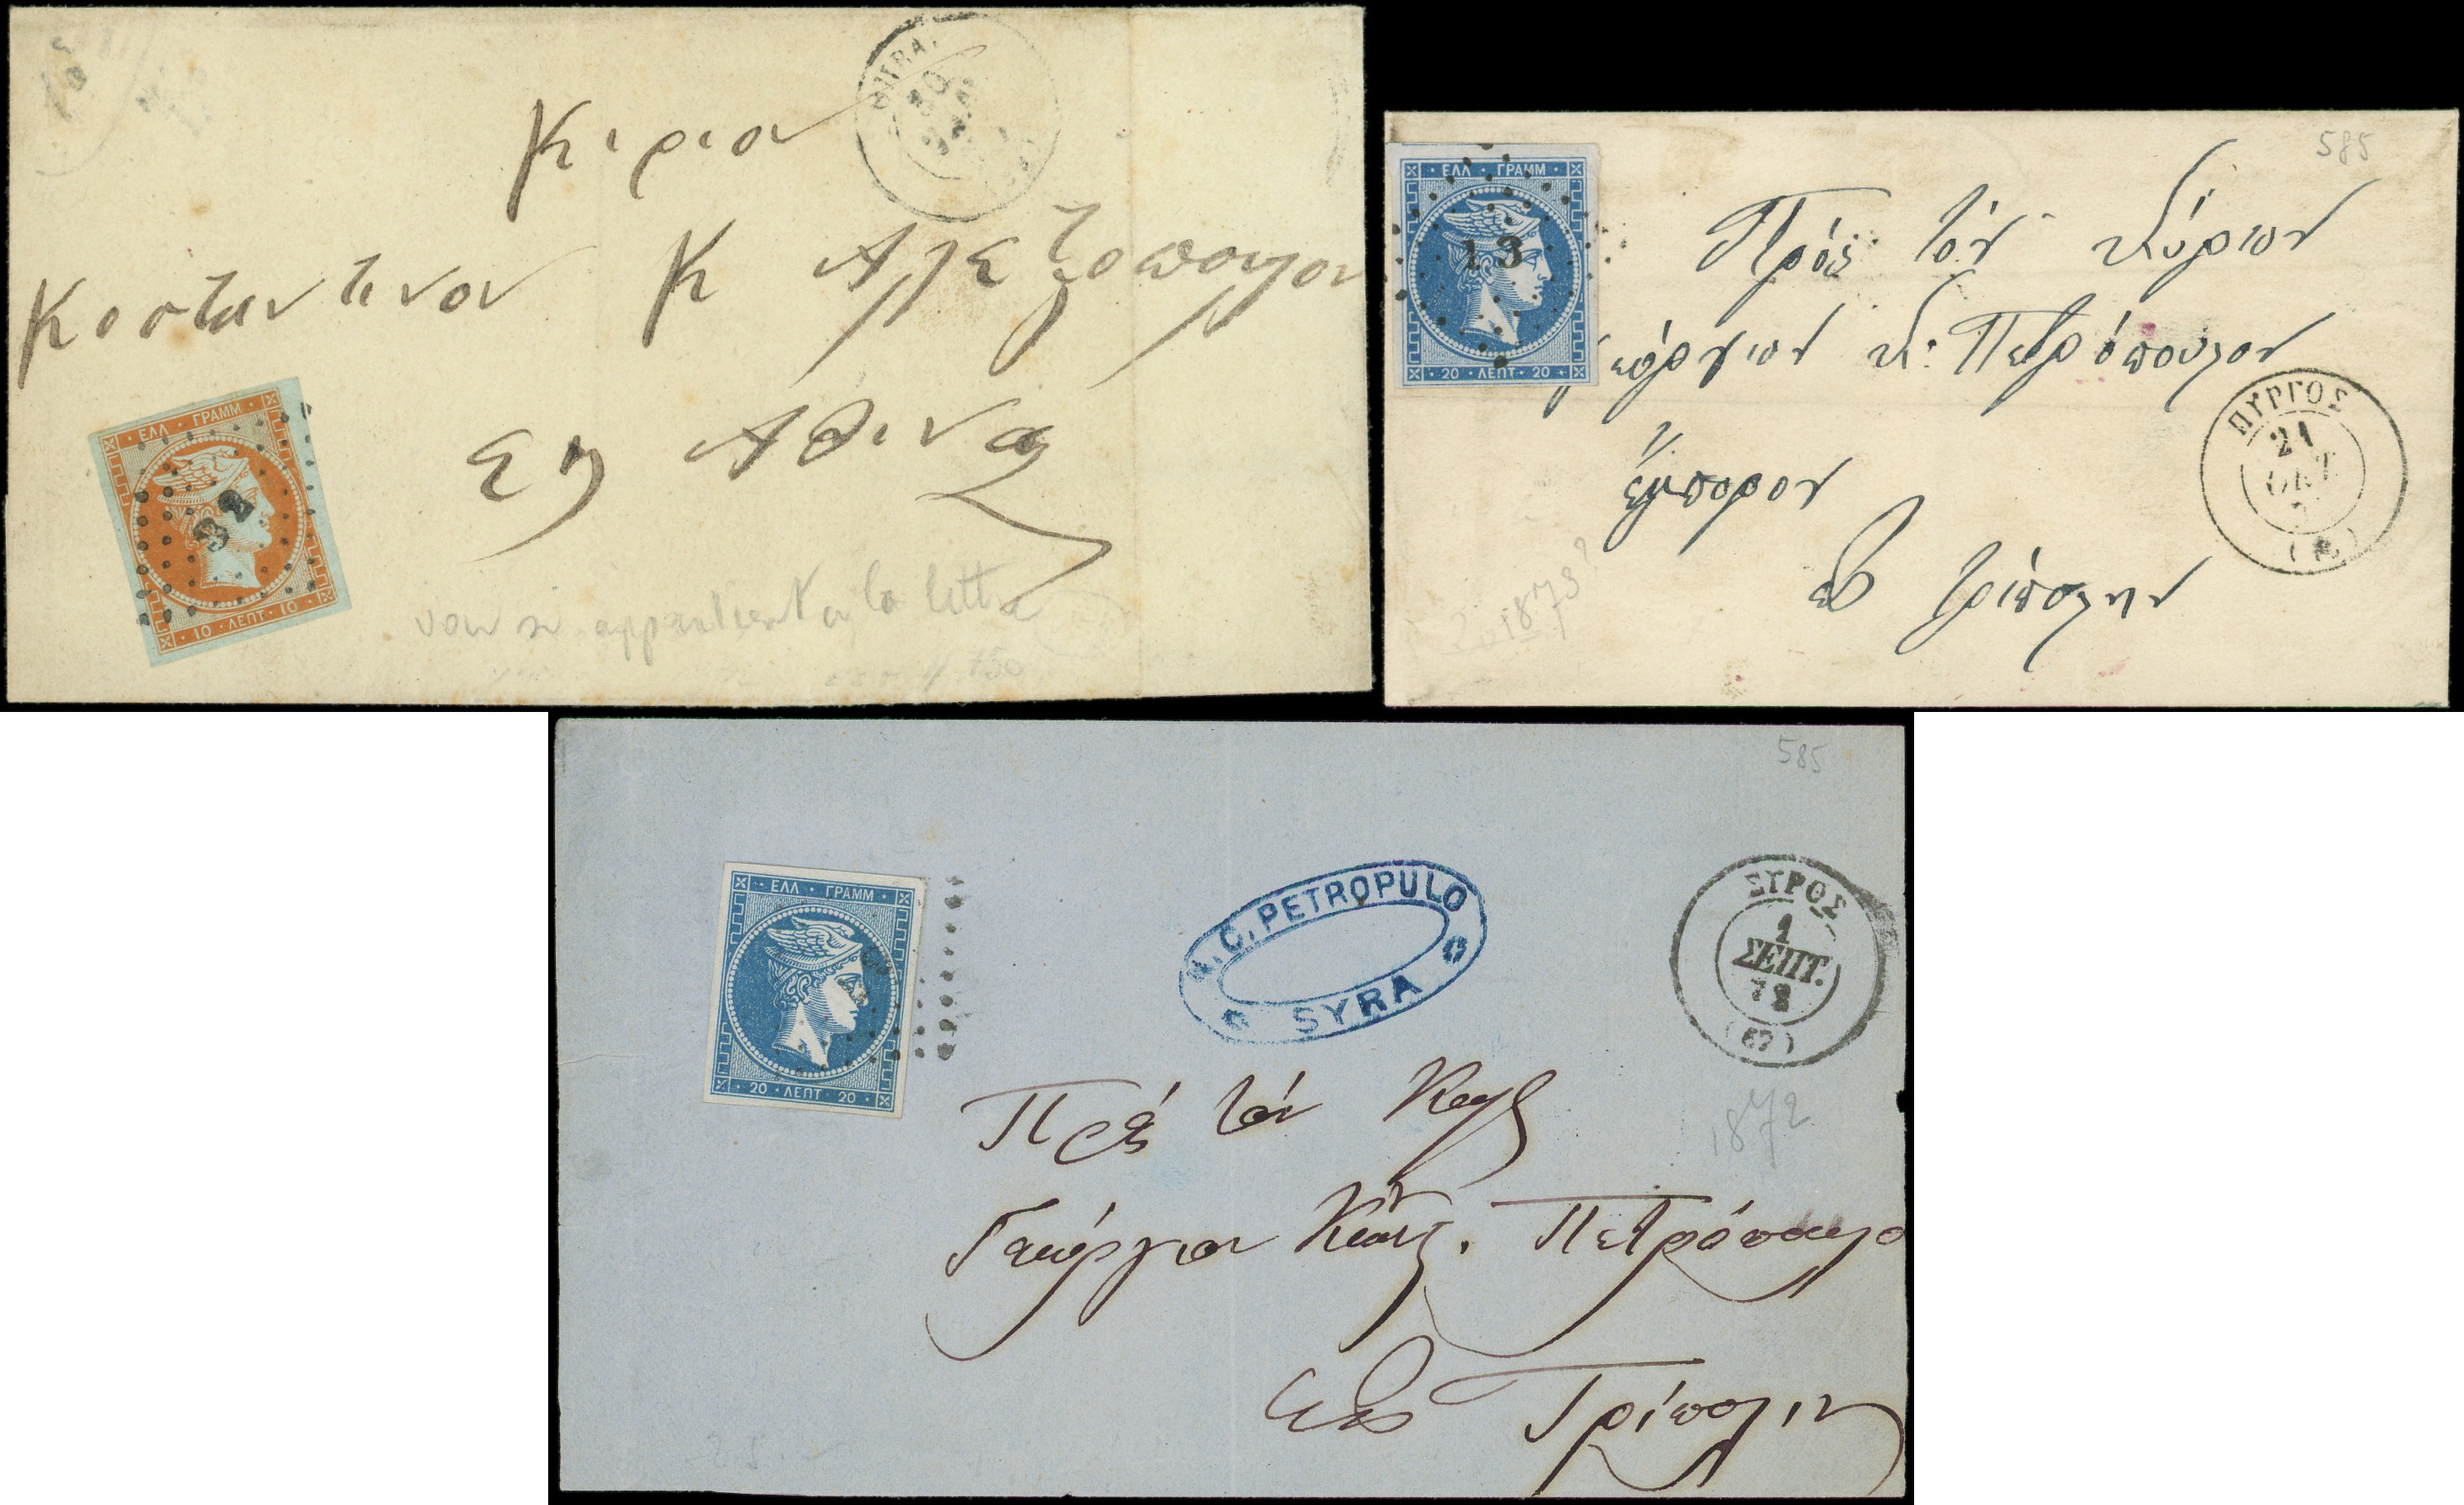 Κιριον
Κοσταντινον Κ Αλεξοπουλον
Εις Αθινας
ΕΛΛ · ΓΡΑΜΜ
10 · ΛΕΠΤ · 10
non si appartient a la lettre
150
585
ΕΛΛ · ΓΡΑΜΜ
13
20 · ΛΕΠΤ · 20
Πρός τόν Κύριον
Γεώργιον Κ. Πετρόπουλον
Ἔμπορον
εἰς Τρίπολιν
ΠΥΡΓΟΣ
21
ΟΚΤ
1873?
585
ΕΛΛ · ΓΡΑΜΜ
20 · ΛΕΠΤ · 20
N. C. PETROPULO
SYRA
ΣΥΡΟΣ
1
ΣΕΠΤ.
72
(67)
1872
Πρός τόν Κον
Γεώργιον Κωνσ. Πετρόπουλο
Εἰς Τρίπολιν